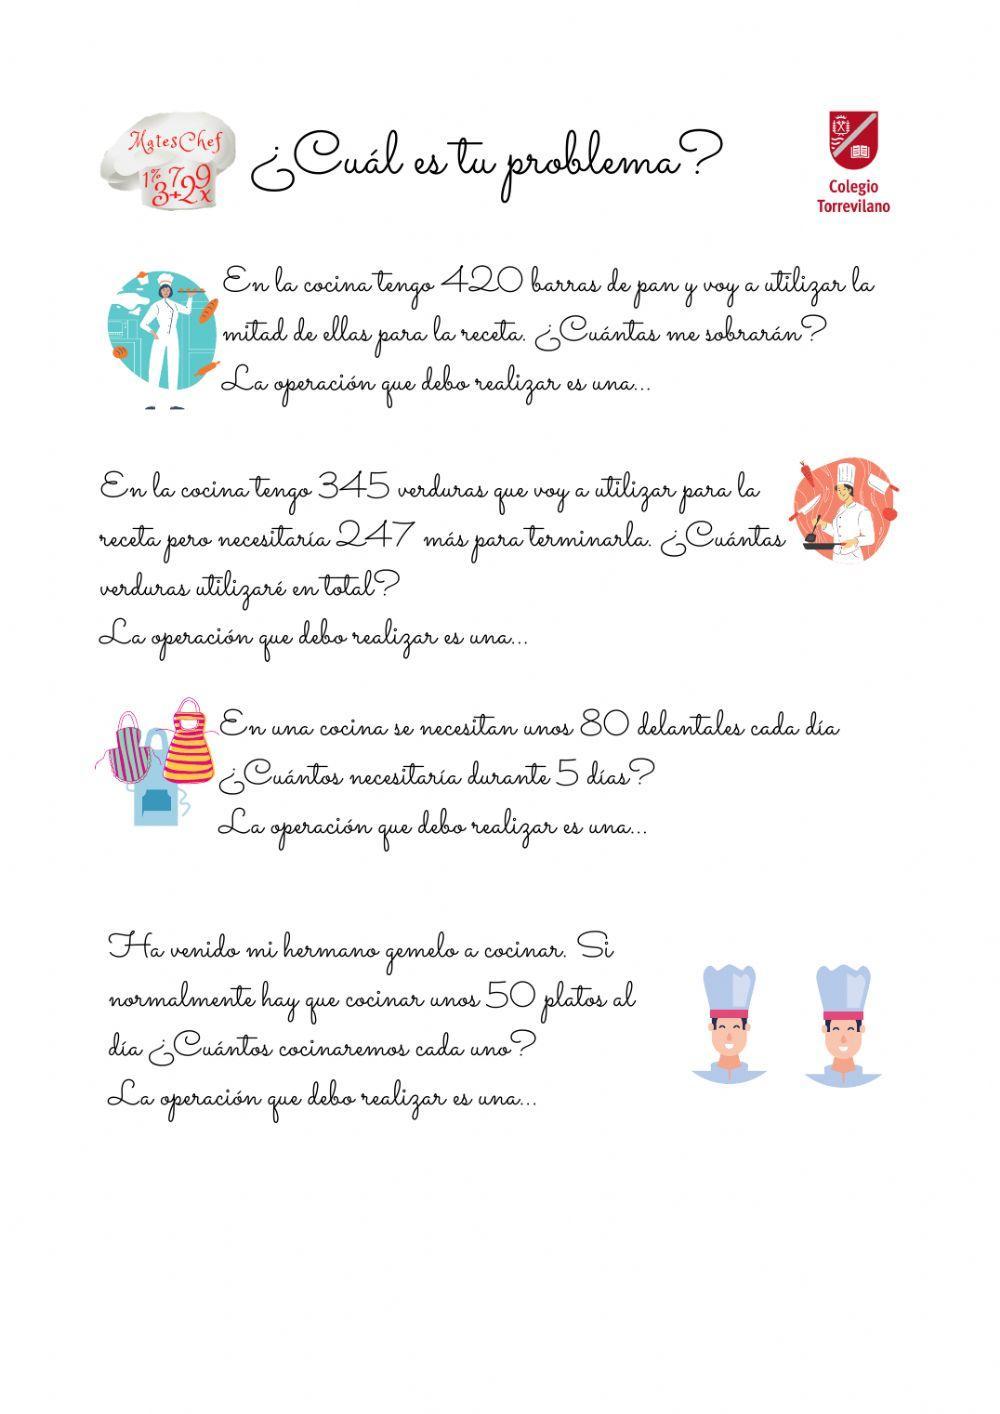 MatesChef
1% 7 9
3+2x
¿Cuál es tu problema?
Colegio
Torrevilano
En la cocina tengo 420 barras de pan y voy a utilizar la
mitad de ellas para la receta. ¿Cuántas me sobrarán?
La operación que debo realizar es una...
En la cocina tengo 345 verduras que voy a utilizar para la
receta pero necesitaría 247 más para terminarla. ¿Cuántas
verduras utilizaré en total?
La operación que debo realizar es una...
En una cocina se necesitan unos 80 delantales cada día
¿Cuántos necesitaría durante 5 días?
La operación que debo realizar es una...
Ha venido mi hermano gemelo a cocinar. Si
normalmente hay que cocinar unos 50 platos al
día ¿Cuántos cocinaremos cada uno?
La operación que debo realizar es una...